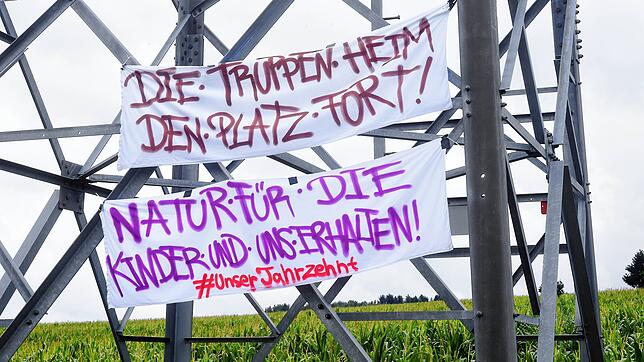 DIE·TRUPPEN·HEIM
DEN·PLATZ·FORT!
NATUR·FÜR·DIE
KINDER·UND·UNS·ERHALTEN!
#UnserJahrzehnt